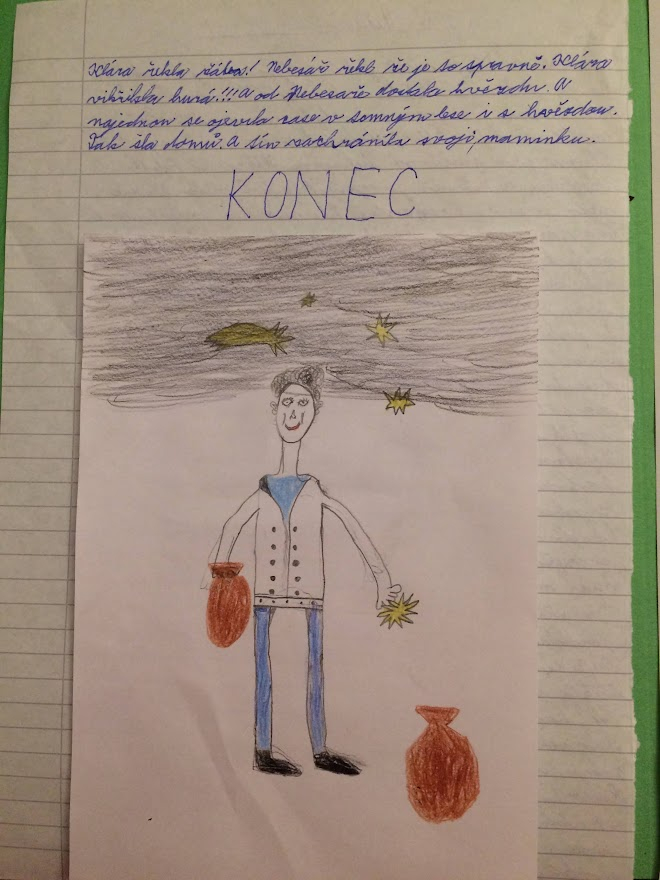 Klára řekla žába! Nebesář řekl že je to spravně. Klára
vikřikla hurá!!! A od Nebesaře dostala hvězdu. A
najednou se ojevila zase v temným lese i s hvězdou.
Tak šla domů. A tím zachránila svoji maminku.
KONEC